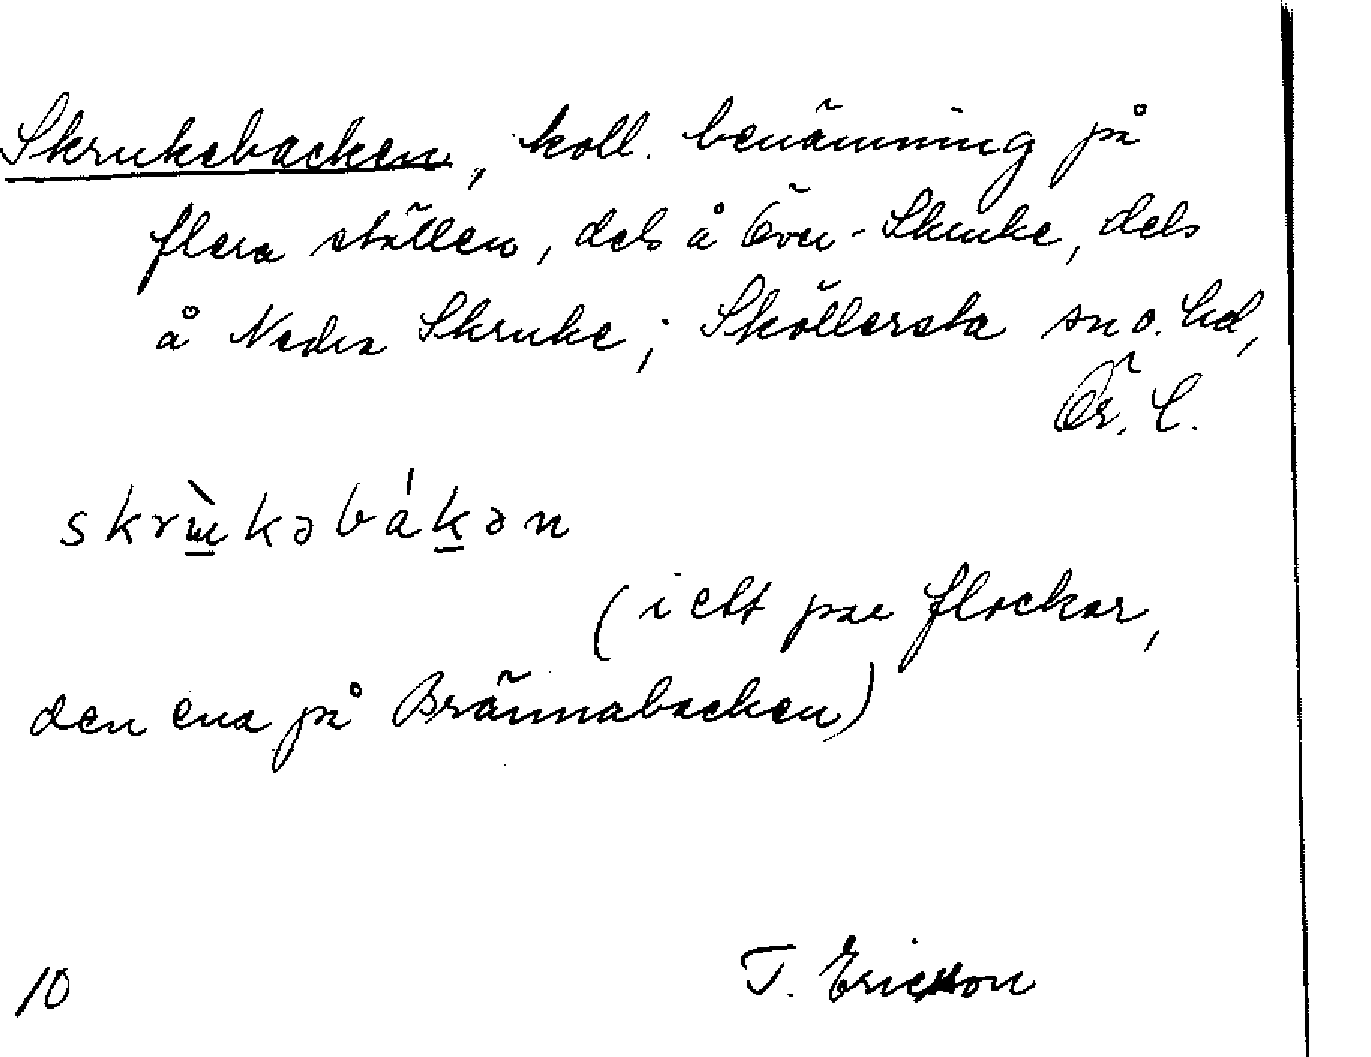 Skrukebacken, koll. benämning på
flera ställen, dels å Över-Skruke, dels
å Nedra Skruke; Sköllersta sn o. hd,
Ör. l.
skrùkəbákən
(i ett par flockar,
den ena på Brännabacken)
T. Ericsson
10